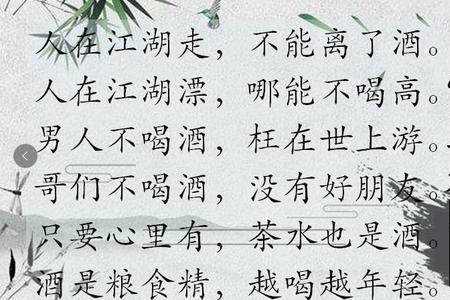 人在江湖走，不能离了酒。
人在江湖漂，哪能不喝高。
男人不喝酒，枉在世上游。
哥们不喝酒，没有好朋友。
只要心里有，茶水也是酒。
酒是粮食精，越喝越年轻。